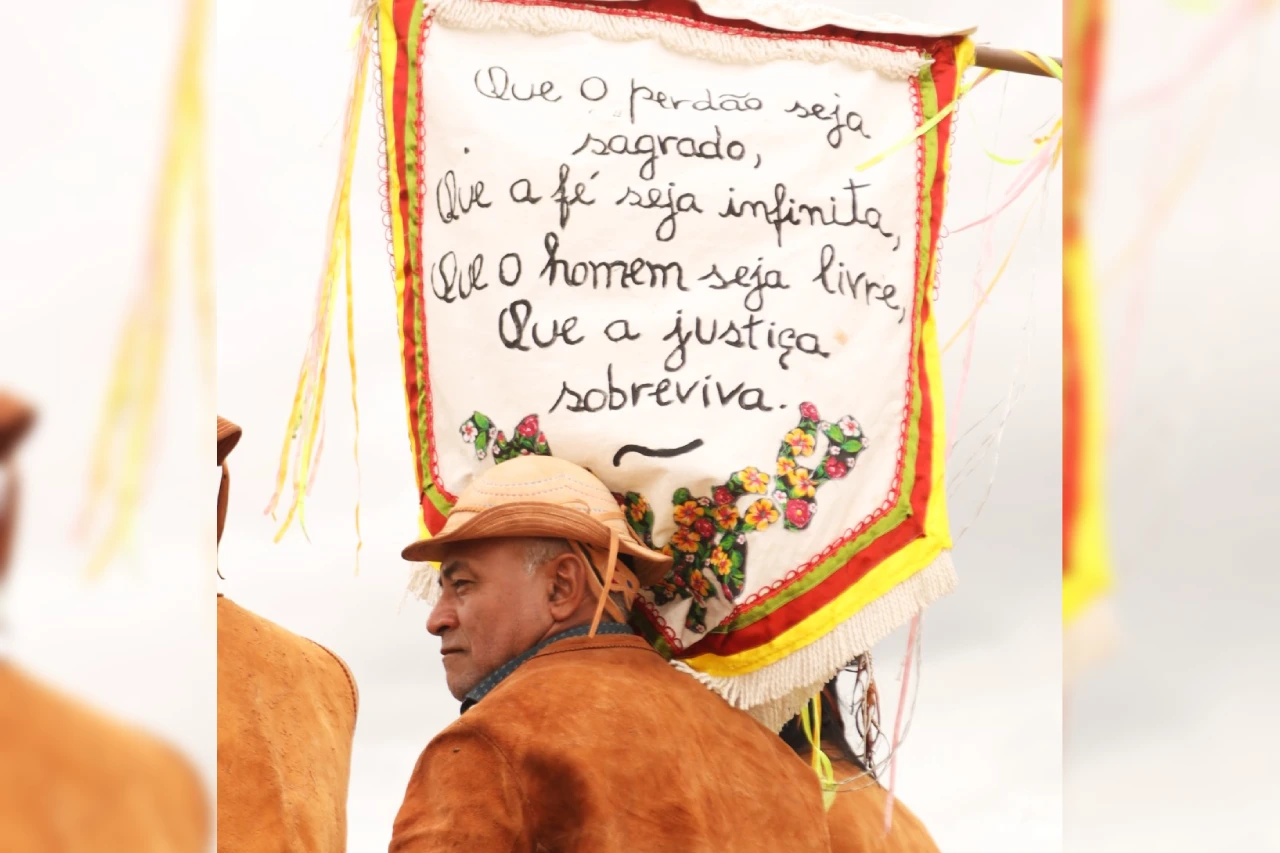 Que O perdão seja
sagrado,
Que a fé seja infinita,
Que O homem seja livre,
Que a justiça
sobreviva.